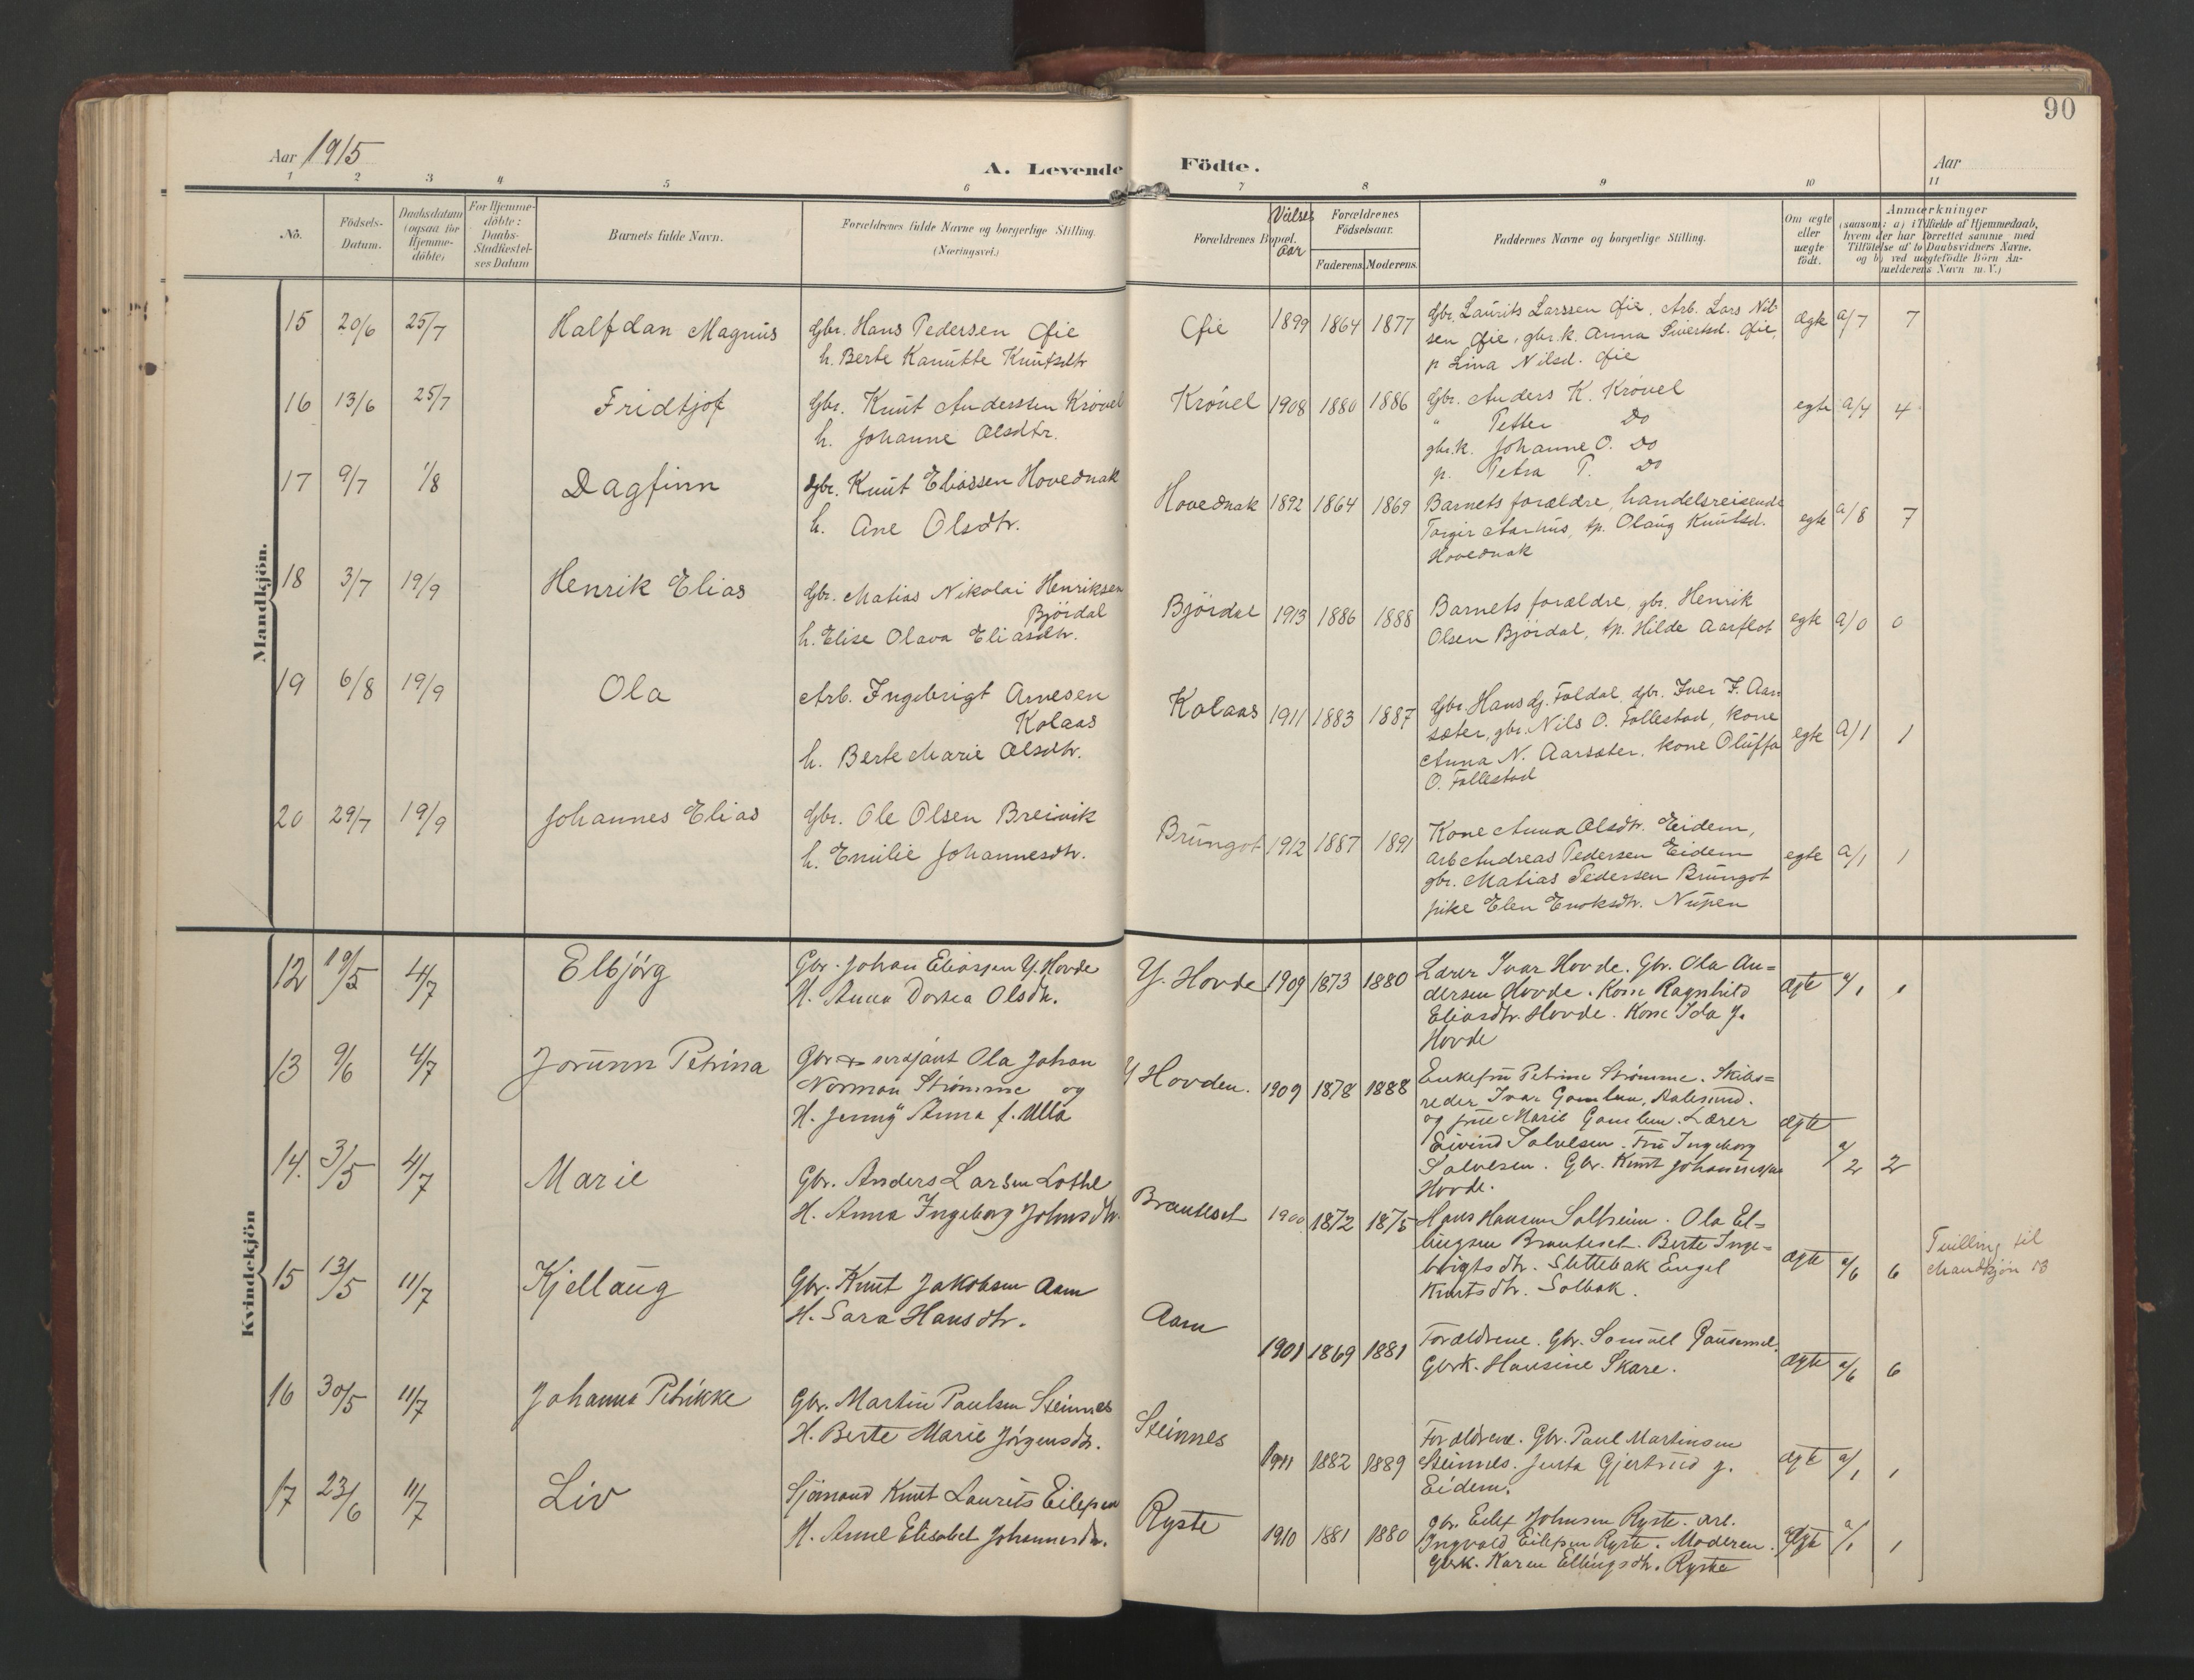 90
Aar 1915
A. Levende Födte.
Aar
1 2 3 4 5 6 7 8 9 10 11
Nô.
Födsels-Datum.
Daabsdatum (ogsaa for Hjemme-döbte)
For Hjemme-döbte: Daabs-Stadfæstel-ses Datum
Barnets fulde Navn.
Forældrenes fulde Navne og borgerlige Stilling.
(Næringsvei.)
Forældrenes Bopæl.
Vielses Aar
Forældrenes Födselsaar.
Faderens. Moderens.
Faddernes Navne og borgerlige Stilling.
Om ægte eller uægte födt.
Anmærkninger
(saasom: a) i Tilfælde af Hjemmedaab,
hvem der har forrettet samme med
Tilföielse af to Daabsvidners Navne.
og b) ved uægtefödte Börn An-
melderens Navn m. V.)
Mandkjön.
15 20/6 25/7 Halfdan Magnus
Gbr. Hans Pedersen Øie
h. Berte Kanutte Knutsdtr
Øie 1899 1864 1877
Gbr. Laurits Larssen Øie. Arb. Lars Nil-
sen Øie, gbr.k. Anna Sivertsd. Øie,
p Lina Nilsd. Øie
ægte a/7 7
16 13/6 25/7 Fridtjof
Gbr. Knut Anderssen Krövel
h. Johanne Olsdtr.
Krövel 1908 1880 1886
Gbr. Anders K. Krövel
" Petter Do
gbr.k. Johanne O. Do
p. Petra P. Do
egte a/4 4
17 9/7 1/8 Dagfinn
Gbr. Knut Eliassen Hovednak
h. Ane Olsdtr.
Hovednak 1892 1864 1869
Barnets forældre, handelsreisende
Torgir Aarhus, tp. Olaug Knutsd.
Hovednak
egte a/8 7
18 3/7 19/9 Henrik Elias
Gbr. Matias Nikolai Henriksen
Björdal
h. Elise Olava Eliasdtr.
Björdal 1913 1886 1888
Barnets forældre, gbr. Henrik
Olsen Björdal, tp. Hilde Aarflot
egte a/0 0
19 6/8 19/9 Ola
Arb. Ingebrigt Arnesen
Kolaas
h. Berte Marie Olsdtr.
Kolaas 1911 1883 1887
Gbr. Hans G. Foldal, gbr. Iver I. Aar
sæter, gbr. Nils O. Follestad, kone
Anna N. Aarsæter, kone Oluffa
O. Follestad
egte a/1 1
20 29/7 19/9 Johannes Elias
Gbr. Ole Olsen Breivik
h. Emilie Johannesdtr.
Brungot 1912 1887 1891
Kone Anna Olsdtr. Eidem,
arb Andreas Pedersen Eidem
gbr. Matias Pedersen Brungot
pike Elen Enoksdtr. Nupen
egte a/1 1
Kvindekjön
12 19/5 4/7 Elbjörg
Gbr. Johan Eliassen Y. Hovde
H. Anna Dortea Olsdtr.
Y. Hovde 1909 1873 1880
Lærer Ivar Hovde. Gbr. Ola An=
dersen Hovde. Kone Ragnhild
Eliasdtr. Hovde. Kone Ida J.
Hovde
ægte a/1 1
13 9/6 4/7 Jorunn Petrina
Gbr & serdjant Ola Johan
Norman Strömme og
H. Jenny Anna f. Ulla
Y Hovden. 1909 1878 1888
Enkefru Petrine Strömme. Skibs=
reder Ivar Gamlem, Aalesund.
og frue Marie Gamlem. Lærer
Eivind Salvesen. Fru Ingeborg
Salvesen. Gbr. Knut Johannessen
Hovde.
ægte a/2 2
14. 3/5 4/7 Marie
Gbr. Anders Larsen Lothe
H. Anna Ingeborg Johnsdtr.
Brauteset 1900 1872 1875
Hans Hansen Solheim. Ola El=
lingsen Brauteset. Berte Inge=
brigtsdtr. Slettebak Engel
Knutsdtr. Solbak.
ægte a/6 6
Tvilling til
Mandkjön 13
15 13/5 11/7 Kjellaug
Gbr. Knut Jakobsen Aam
H. Sara Hansdtr.
Aam 1901 1869 1881
Forældrene. Gbr. Samuel
Gbrk. Hansine Skare.
ægte a/6 6
16 30/5 11/7 Johanna Petrikke
Gbr. Martin Paulsen Steinnes
H. Berte Marie Jörgensdtr.
Steinnes 1911 1882 1889
Forældrene. Gbr. Paul Martinsen
Steinnes. Gjertrud J.
Eidem.
ægte a/1 1
17 23/6 11/7 Liv
Sjömand Knut Laurits Eilefsen
H. Anne Elisabet Johannesdtr.
Ryste 1910 1881 1880
gbr. Eilef Johnsen Ryste. arb.
Ingvald Eilefsen Ryste. Moderen.
Gbrk. Karen Ellingsdtr. Ryste
ægte a/1 1